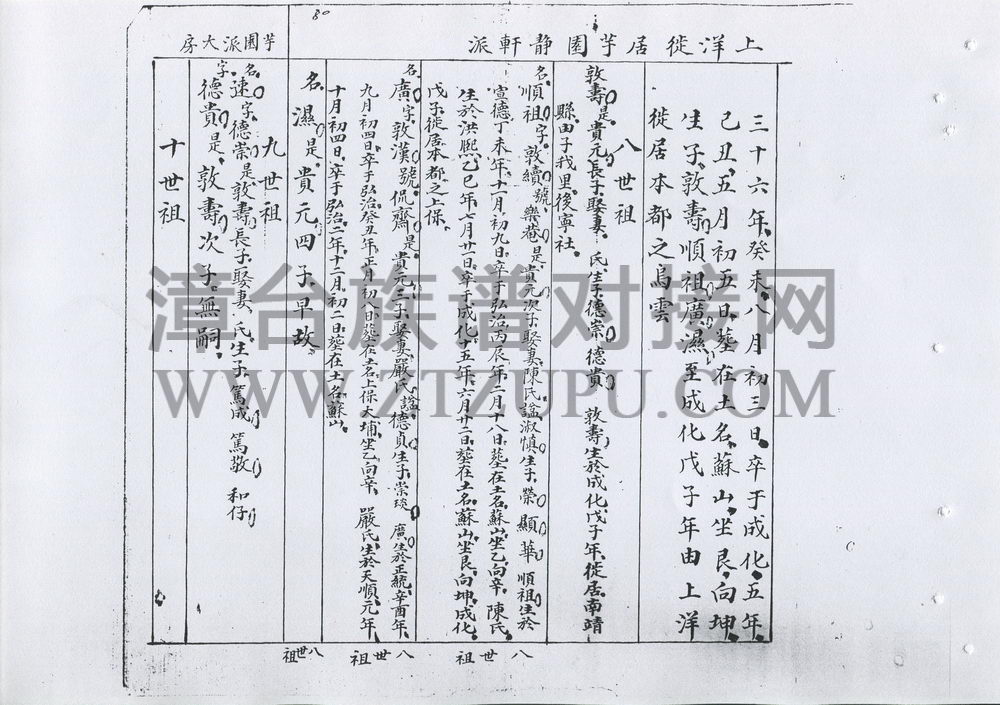 80
上洋徙居芋園靜軒派
三十六年癸未八月初三日卒于成化五年
己丑五月初五日葬在土名蘇山坐艮向坤
生子敦壽順祖廣濕至成化戊子年由上洋
徙居本都之烏雲
八世祖
敦壽是貴元長子娶妻 氏生子德崇德貴 敦壽生於成化戊子年徙居南靖
縣由子我里後寧社
名順祖字敦續號樂菴是貴元次子娶妻陳氏謚淑慎生子榮顯華 順祖生於
宣德丁未年十一月初九日卒于弘治丙辰年二月十八日葬在土名蘇山坐乙向辛 陳氏
生於洪熙乙巳年七月廿一日卒于成化十五年六月廿二日葬在土名蘇山坐艮向坤成化
戊子徙居本都之上保
名廣字敦漢號侃齋是貴元三子娶妻嚴氏謚德貞生子崇琰 廣生於正統辛酉年
九月初四日卒于弘治癸丑年正月初八日葬在土名上保大埔坐乙向辛 嚴氏生於天順元年
十月初四日卒于弘治二年十二月初二日葬在土名蘇山
名濕是貴元四子早故
八世祖
八世祖
八世祖
芋園派大房
九世祖
名速字德崇是敦壽長子娶妻 氏生子篤成 篤敬 和仔
字德貴是敦壽次子無嗣
十世祖
漳台族谱对接网
WWW.ZTZUPU.COM